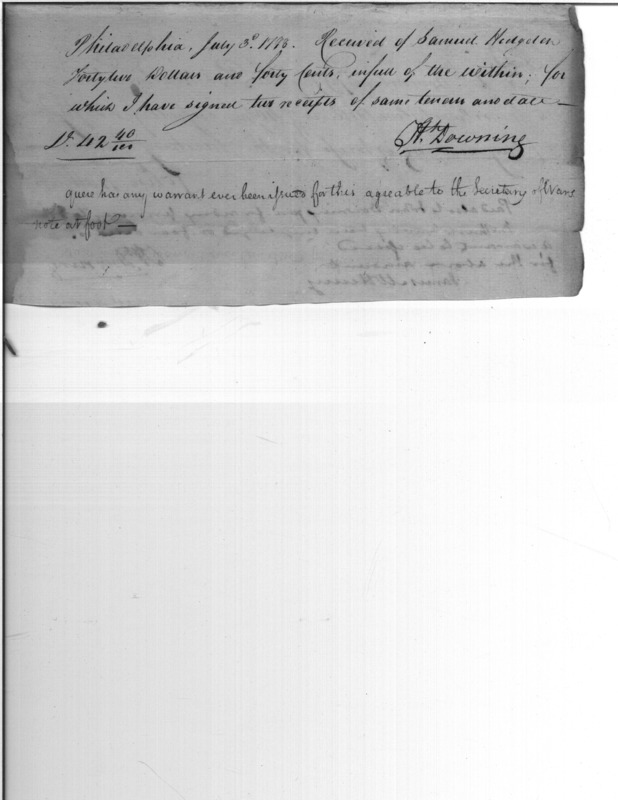 Philadelphia, July 3d. 1793. Received of Samuel Hodgdon
Forty two Dollars and forty Cents, in full of the within; for
which I have signed two receipts of same tenor and date —
Ds. 42 40/100
Downing
quere has any warrant ever been issued for this agreable to the Secretary of Wars
note at foot —